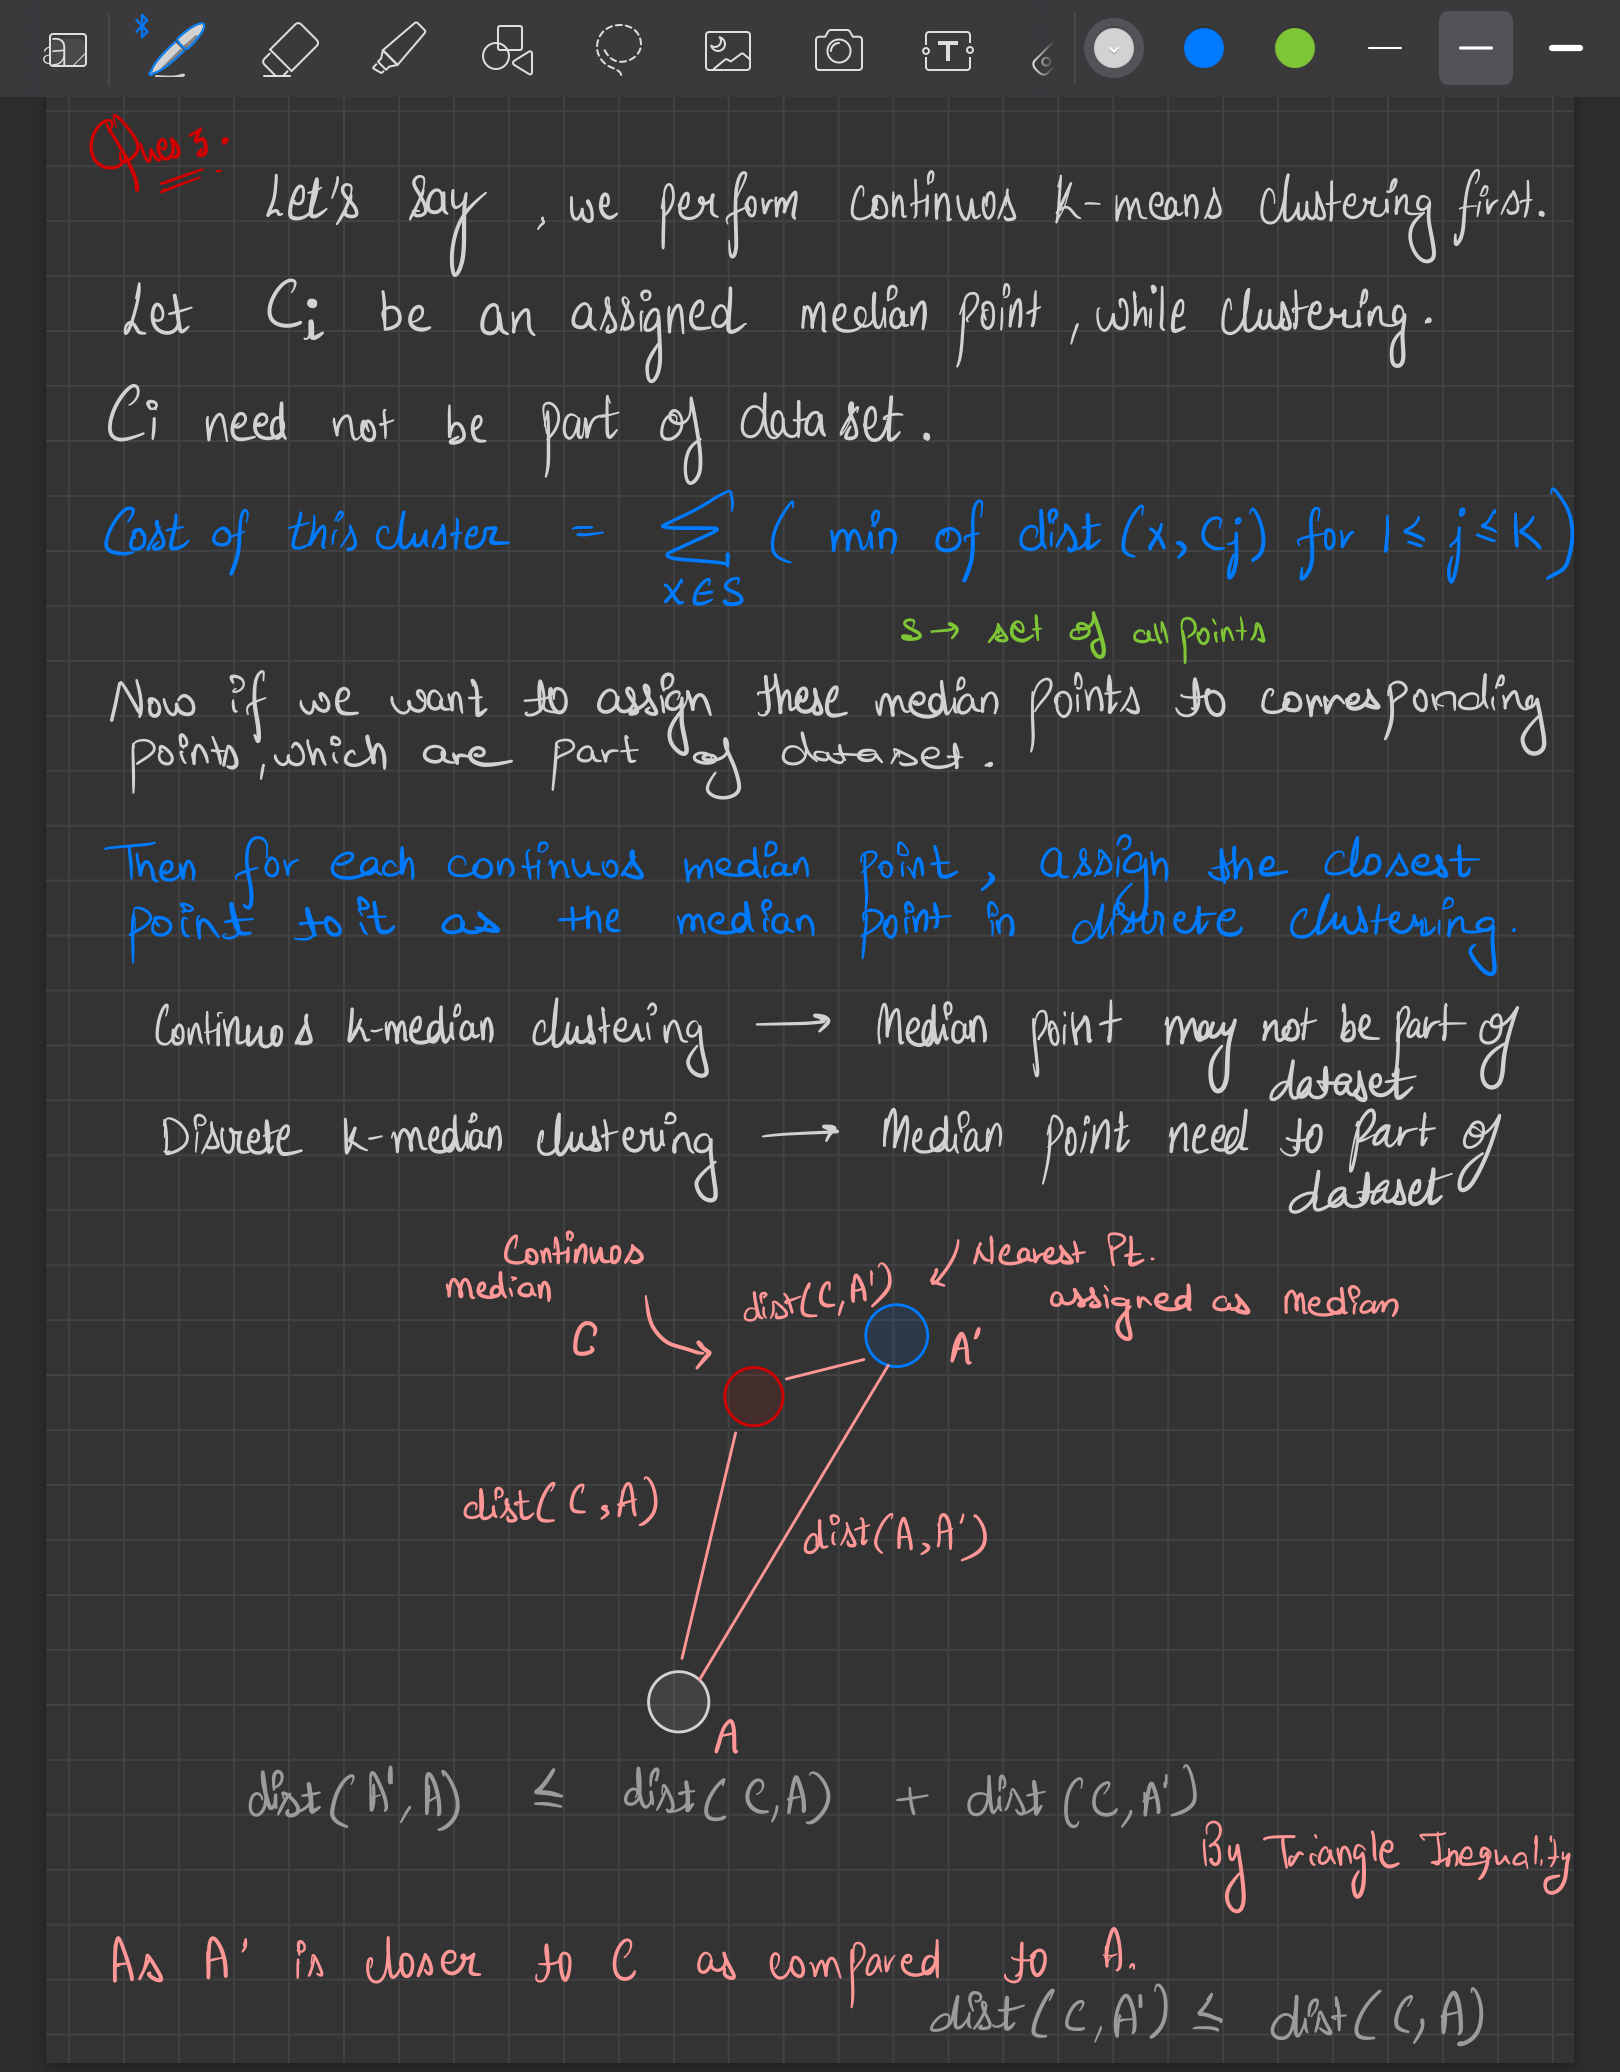 Ques 3.
Let's say, we perform continuos K-means clustering first.
Let Ci be an assigned median point, while clustering.
Ci need not be part of dataset.
Cost of this cluster = ∑ ( min of dist (x, Cj) for 1 ≤ j ≤ K )
x ∈ S
S → set of all points
Now if we want to assign these median points to corresponding
points, which are part of dataset.
Then for each continuos median point, assign the closest
point to it as the median point in discrete clustering.
Continuos k-median clustering → Median point may not be part of
dataset
Discrete k-median clustering → Median point need to part of
dataset
Continuos
median
C
dist(C,A')
Nearest Pt.
assigned as median
A'
dist(C,A)
dist(A,A')
A
dist(A',A) ≤ dist(C,A) + dist(C,A')
By Triangle Inequality
As A' is closer to C as compared to A.
dist(C,A') ≤ dist(C,A)